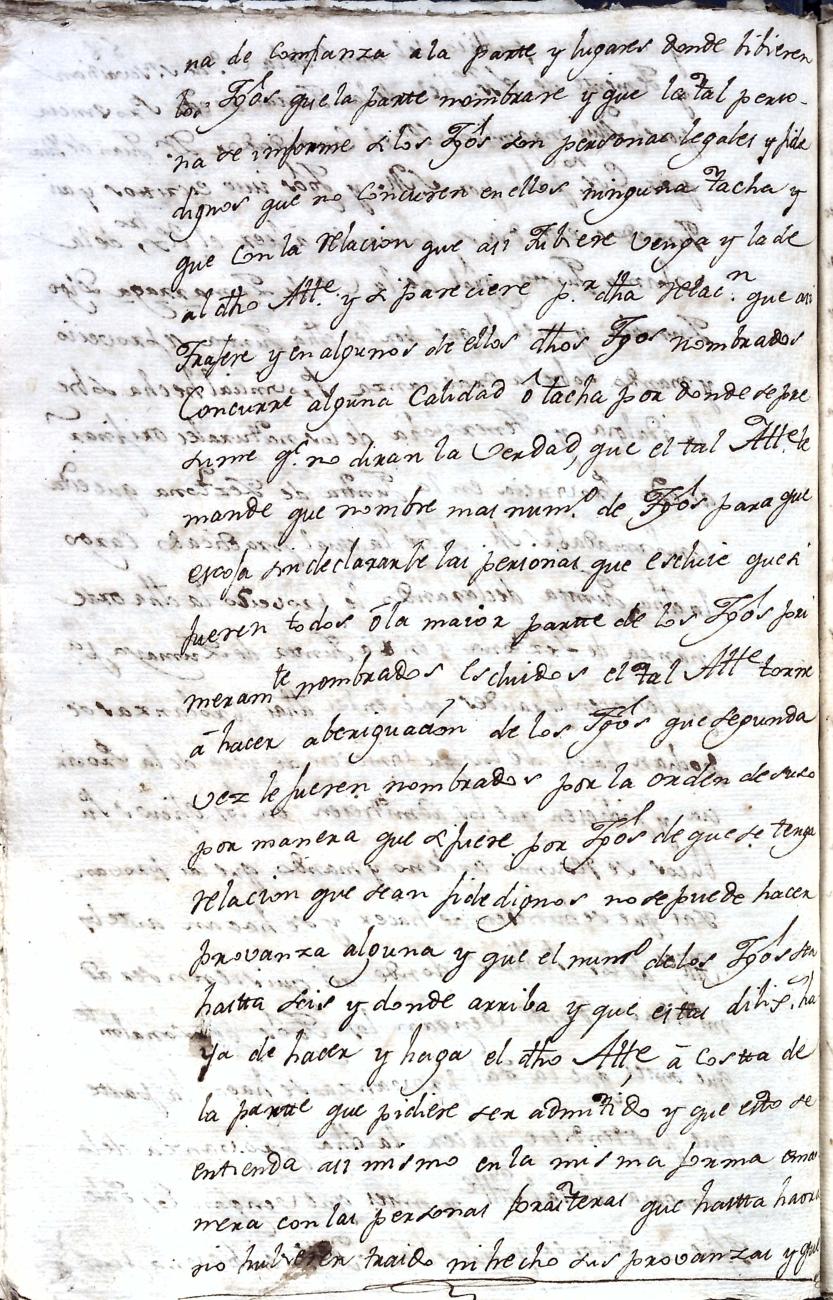 na de comfianza a la parte y lugares donde bibieren
los Tgos que la parte nombrare y que la tal perso-
na se informe si los Tgos son personas legales y fide
dignos que no concurren en ellos ninguna tacha y
que con la relacion que asi tubiere venga y la de
al dho Alle. y si pareciere pr. dha relacn. que asi
trajere y en algunos de ellos dhos Tgos nombrados
concurre alguna calidad ó tacha por donde se pre
sume qe. no diran la verdad, que el tal Alle. le
mande que nombre mas numo. de Tgos para que
escoja sin declararle las personas que escluie que si
fueren todos ó la maior partte de los Tgos pri
meramte nombrados escluidos el tal Alle torne
á hacer aberiguación de los Tgos que segunda
vez le fueren nombrados por la orden de suso
por manera que si fuere por Tgos de que se tenga
relacion que sean fidedignos no se puede hacer
provanza alguna y que el numo de los Tgos sea
hastta seis y donde arriba y que estas dilixs. ha
ya de hacer y haga el dho Alle á costta de
la partte que pidiere ser admitido y que estto se
entienda asi mismo en la misma forma é ma
nera con las personas forasteras que hastta haora
no hubieren traido ni hecho sus provanzas y que